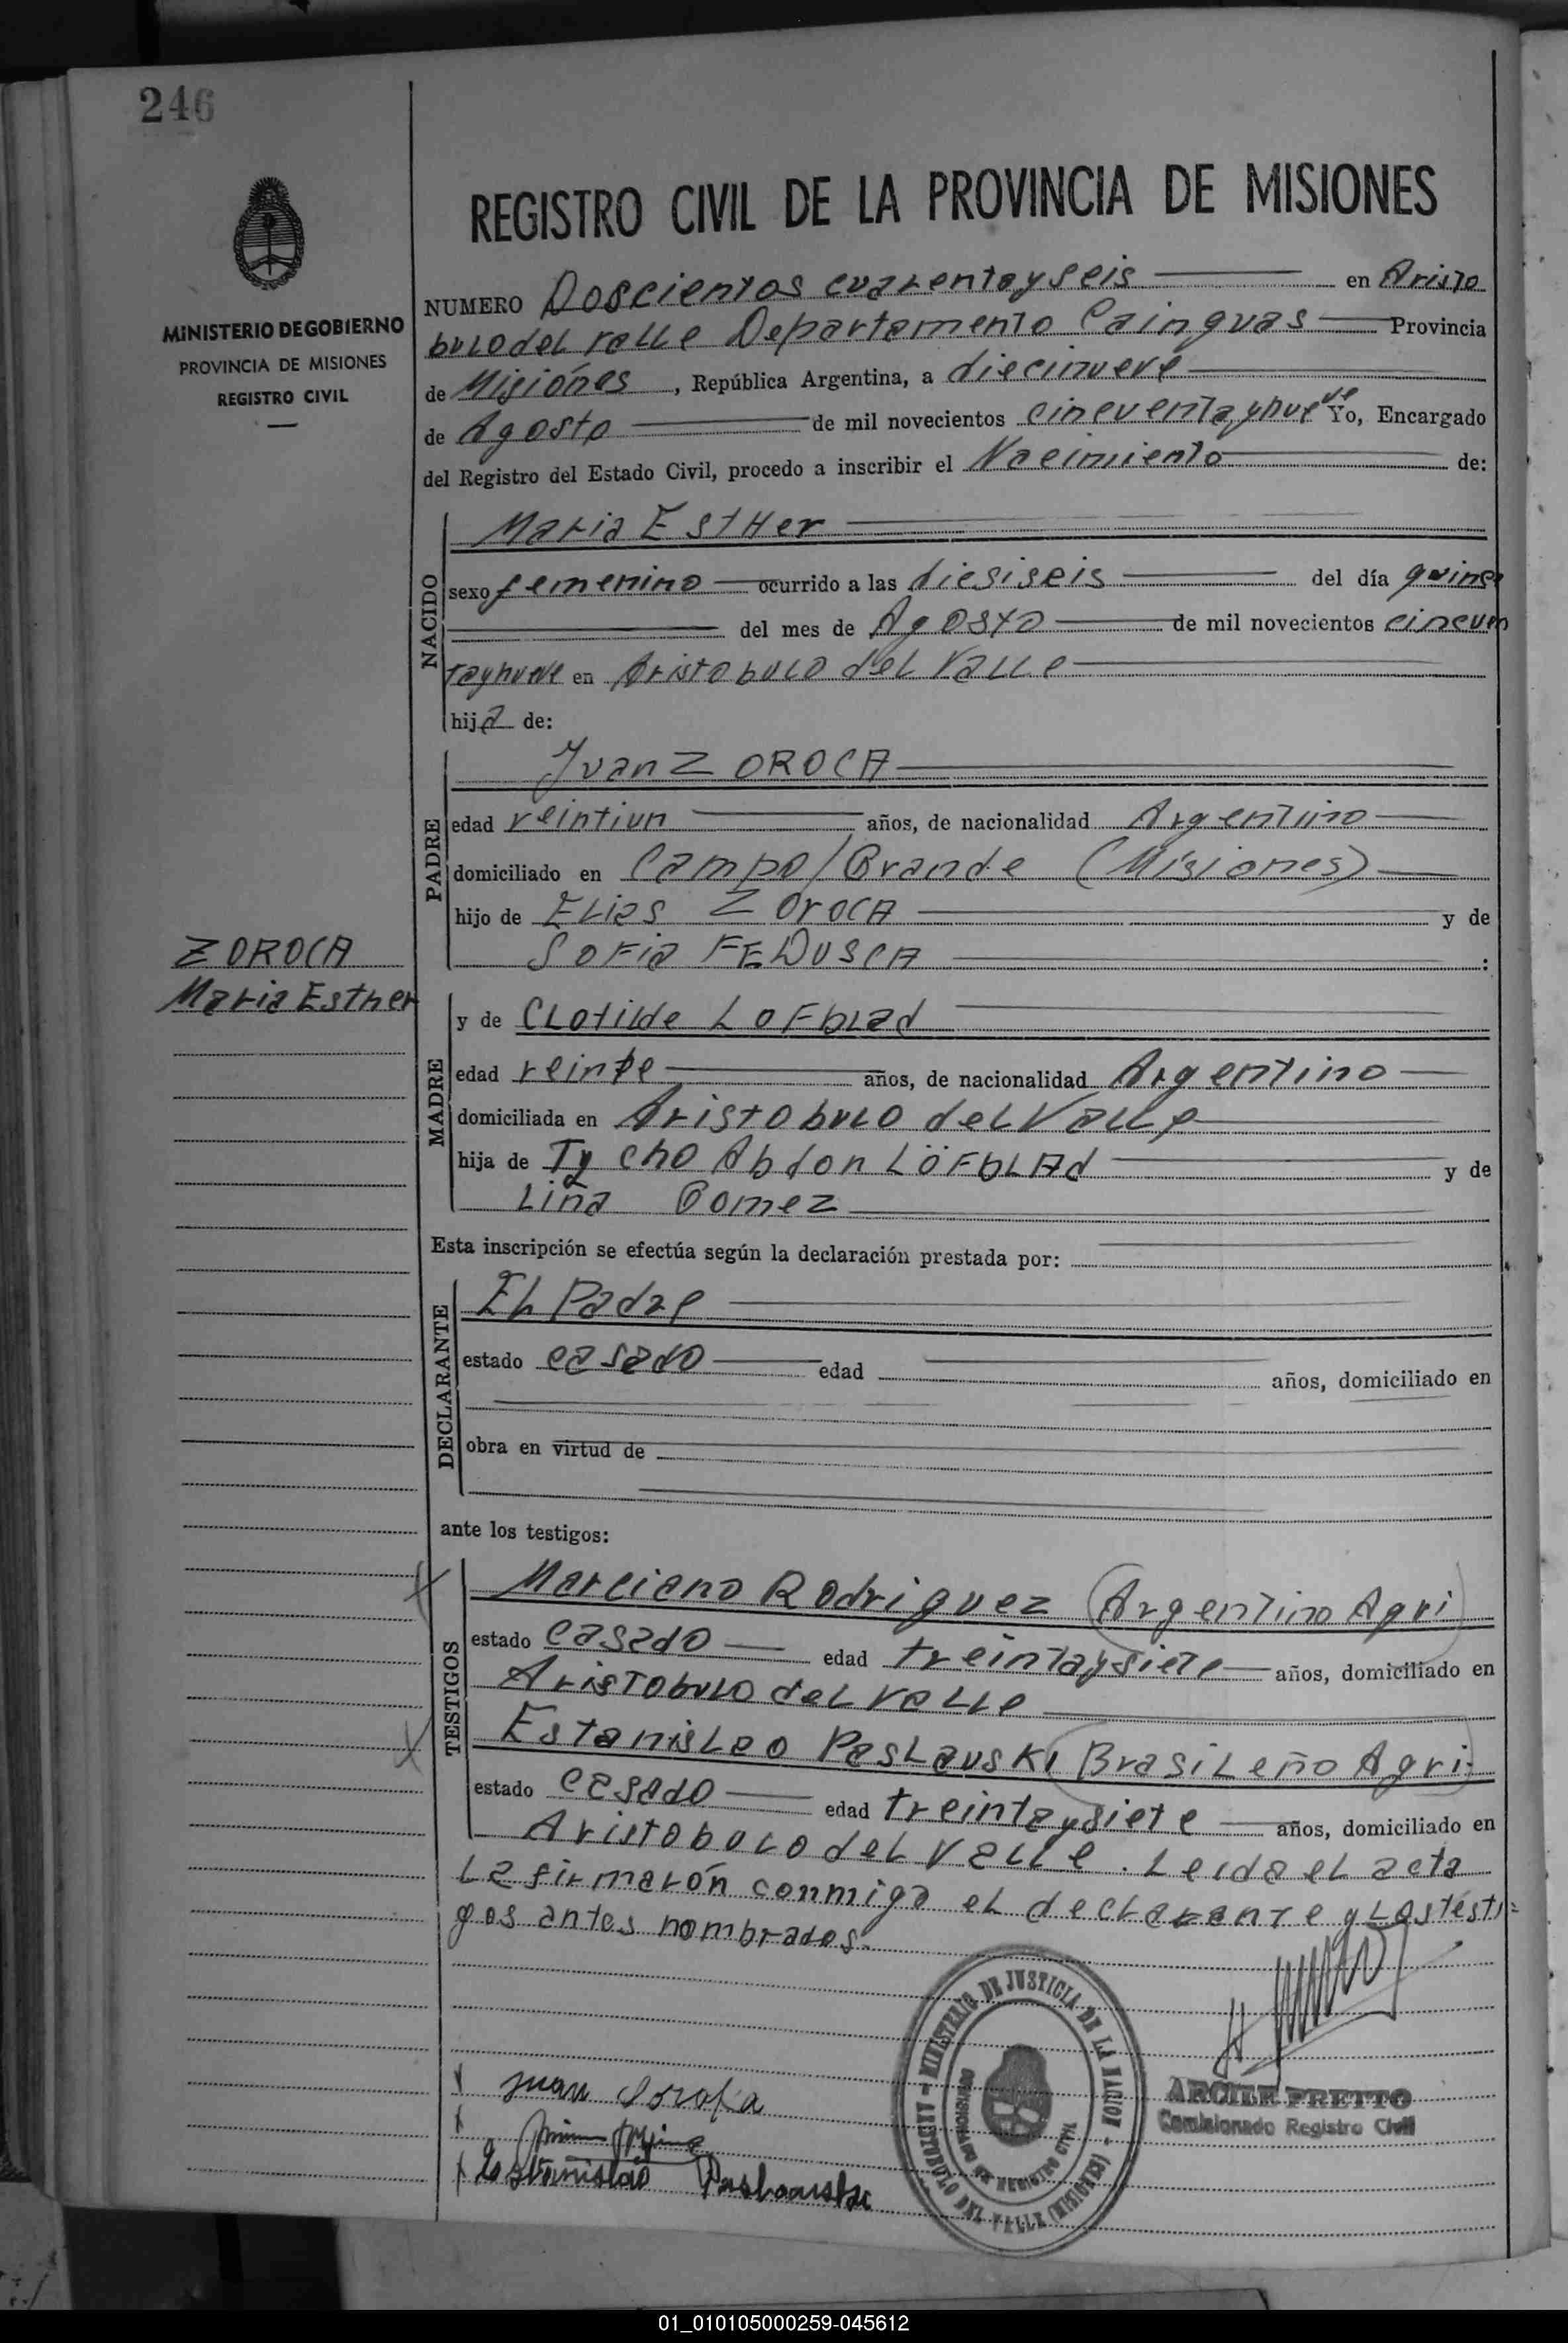 246
REGISTRO CIVIL DE LA PROVINCIA DE MISIONES
MINISTERIO DE GOBIERNO
PROVINCIA DE MISIONES
REGISTRO CIVIL
NUMERO Doscientos cuarentayseis en Aristo
bulo del valle Departamento Cainguas Provincia
de Misiónes, República Argentina, a diecinueve
de Agosto de mil novecientos cincuentaynueve Yo, Encargado
del Registro del Estado Civil, procedo a inscribir el Nacimiento de:
NACIDO
Maria EstHer
sexo femenino ocurrido a las diesiseis del día quinse
del mes de Agosto de mil novecientos cincuen
taynueve en Aristobulo del Valle
hija de:
PADRE
Juan ZOROCA
edad veintiun años, de nacionalidad Argentino
domiciliado en Campo/Grande (Misiones)
hijo de Elias ZOrOCA y de
Sofia FEDUSCA :
ZOROCA
Maria Esther
MADRE
y de Clotilde Lofblad
edad veinte años, de nacionalidad Argentino
domiciliada en Aristobulo del Valle
hija de Tycho Abdon LöfbLAd y de
Lina Gomez
Esta inscripción se efectúa según la declaración prestada por:
DECLARANTE
El Padre
estado casado edad años, domiciliado en
obra en virtud de
ante los testigos:
TESTIGOS
Marciano Rodriguez (Argentino Agri)
estado casado edad treintaysiete años, domiciliado en
Aristobulo del valle
Estanisleo Paslauski (Brasileño Agri.)
estado casado edad treintaysiete años, domiciliado en
Aristobulo del Valle. Leida el acta
la firmarón conmigo el declarante y los testi=
gos antes nombrados.
MINISTERIO DE JUSTICIA DE LA NACION - ARISTOBULO DEL VALLE (MISIONES) -
COMISIONADO DE REGISTRO CIVIL
ARCILE PRETTO
Comisionado Registro Civil
Juan Soroka
Estanislao Paslauski
01_010105000259-045612